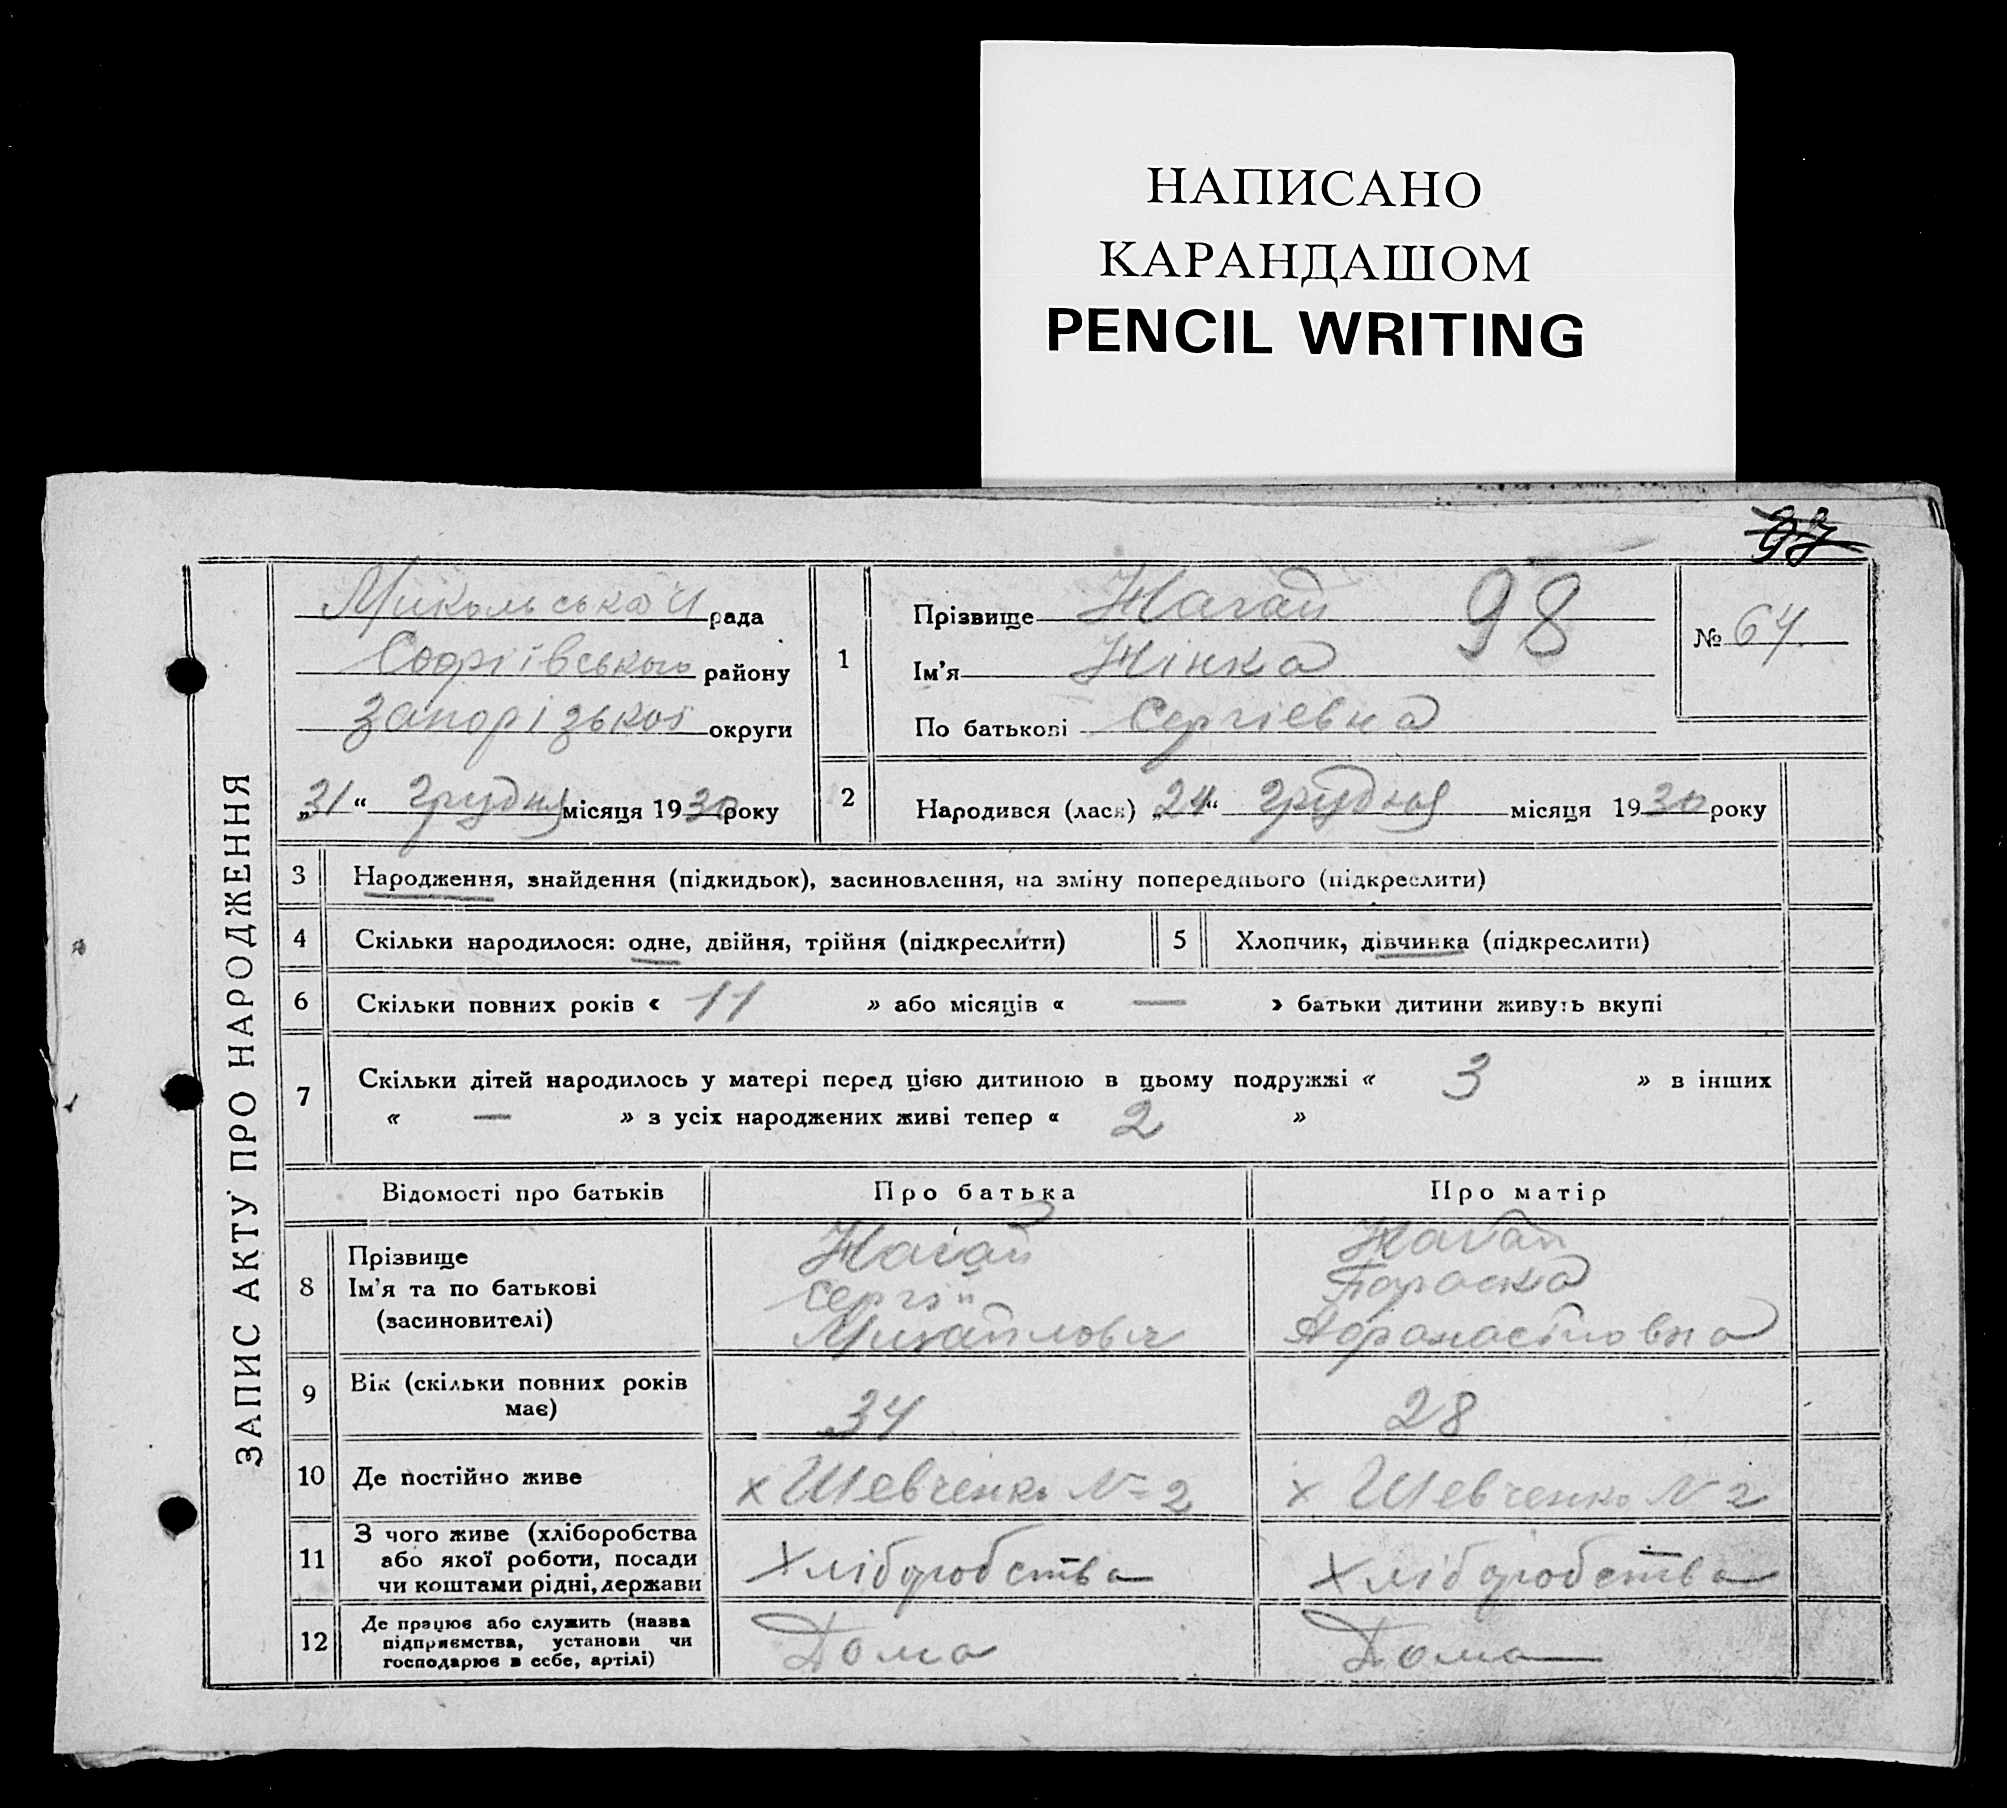 НАПИСАНО
КАРАНДАШОМ
PENCIL WRITING
97
ЗАПИС АКТУ ПРО НАРОДЖЕННЯ
рада
Софіївського району
Запорізької округи
„31“ грудня місяця 1930 року
1
Прізвище Нагай
98
Ім'я Нінка
По батькові Сергіевна
№ 64.
2 Народився (лася) „24“ грудня місяця 1930 року
3 Народження, знайдення (підкидьок), засиновлення, на зміну попереднього (підкреслити)
4 Скільки народилося: одне, двійня, трійня (підкреслити) 5 Хлопчик, дівчинка (підкреслити)
6 Скільки повних років « 11 » або місяців « — » батьки дитини живуть вкупі
7 Скільки дітей народилось у матері перед цією дитиною в цьому подружжі « 3 » в інших
« — » з усіх народжених живі тепер « 2 »
Відомості про батьків Про батька Про матір
8 Прізвище Нагай Нагай
Ім'я та по батькові Сергій Параска
(засновителі) Михайлович
9 Вік (скільки повних років має) 34 28
10 Де постійно живе х Шевченко № 2 х Шевченко № 2
11 З чого живе (хліборобства
або якої роботи, посади
чи коштами рідні, держави Хліборобства Хліборобства
12 Де працює або служить (назва
підприємства, установи чи
господарює в себе, артілі) Дома Дома